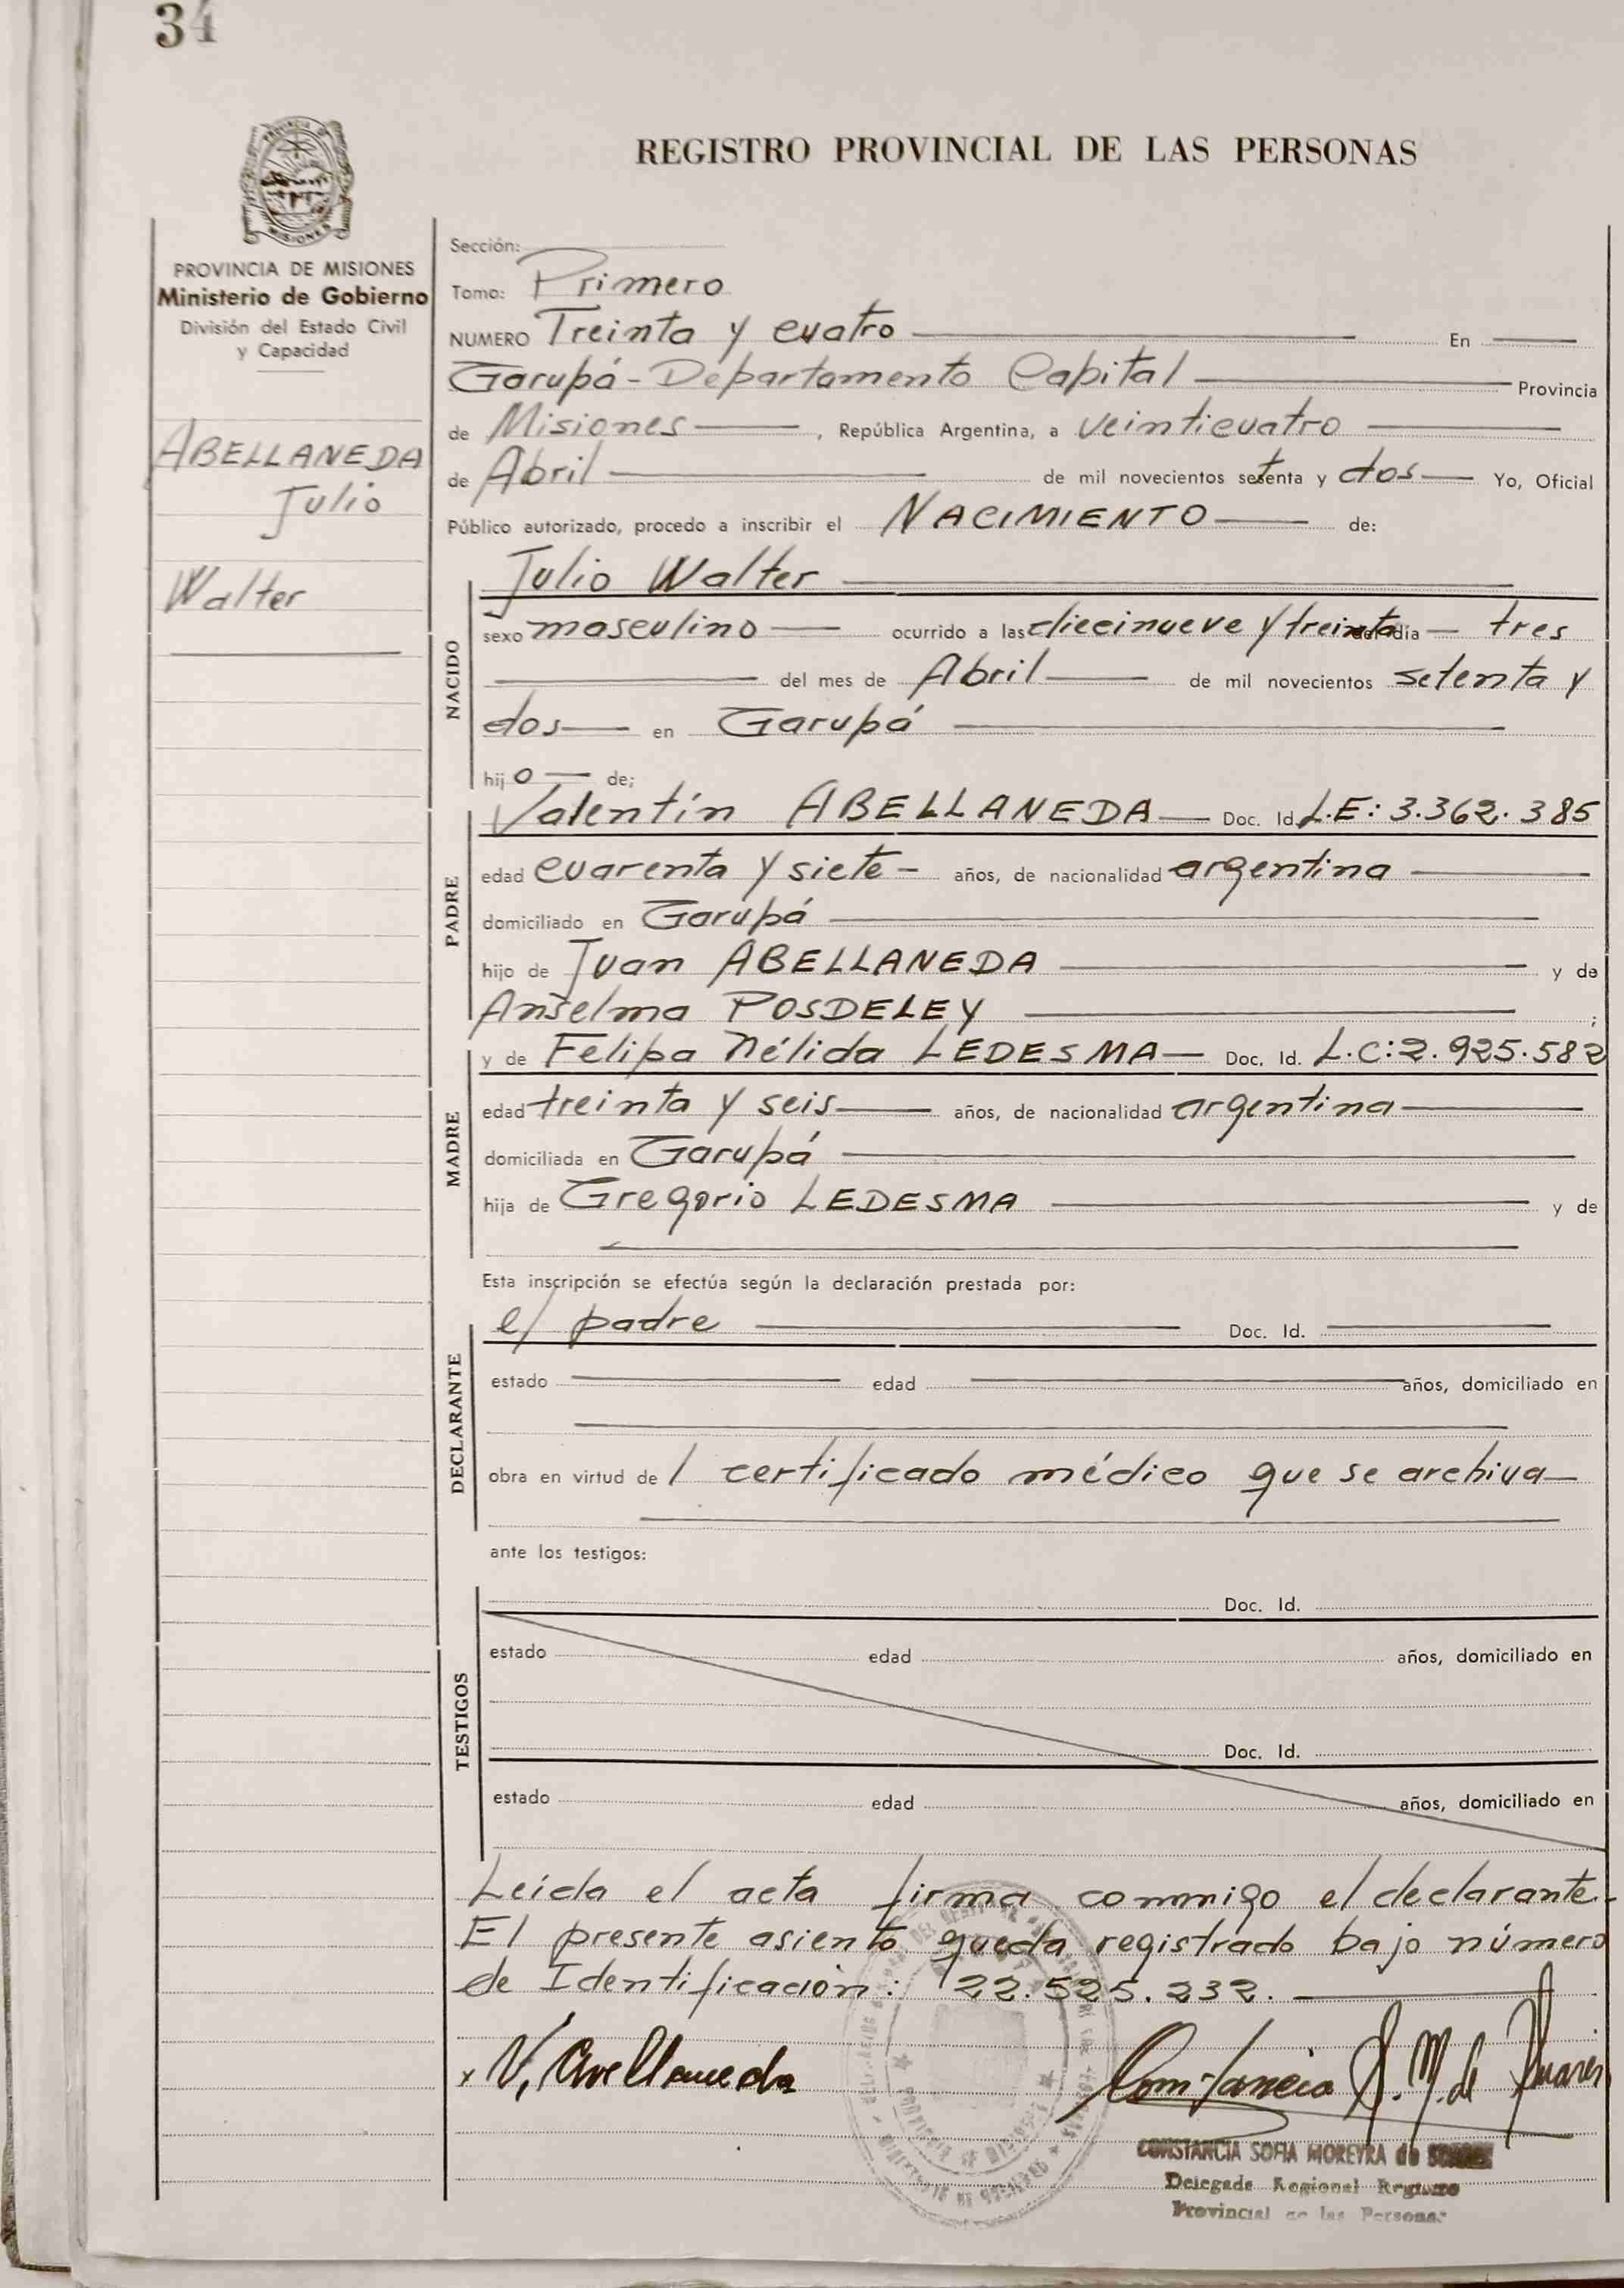 34
REGISTRO PROVINCIAL DE LAS PERSONAS
PROVINCIA DE MISIONES
Ministerio de Gobierno
División del Estado Civil
y Capacidad
ABELLANEDA
Julio
Walter
Sección:
Tomo: Primero
NUMERO Treinta y cuatro En
Garupá - Departamento Capital Provincia
de Misiones , República Argentina, a veinticuatro
de Abril de mil novecientos setenta y dos Yo, Oficial
Público autorizado, procedo a inscribir el NACIMIENTO de:
NACIDO
Julio Walter
sexo masculino ocurrido a las diecinueve y treinta del día tres
del mes de Abril de mil novecientos setenta y
dos en Garupá
hijo de;
PADRE
Valentín ABELLANEDA Doc. Id. L.E: 3.362.385
edad cuarenta y siete años, de nacionalidad argentina
domiciliado en Garupá
hijo de Juan ABELLANEDA y de
Anselma POSDELEY ;
MADRE
y de Felipa Nélida LEDESMA Doc. Id. L.C: 2.925.582
edad treinta y seis años, de nacionalidad argentina
domiciliada en Garupá
hija de Gregorio LEDESMA y de
Esta inscripción se efectúa según la declaración prestada por:
DECLARANTE
el padre Doc. Id.
estado edad años, domiciliado en
obra en virtud de l certificado médico que se archiva
ante los testigos:
TESTIGOS
Doc. Id.
estado edad años, domiciliado en
Doc. Id.
estado edad años, domiciliado en
Leída el acta firma conmigo el declarante.
El presente asiento queda registrado bajo número
de Identificación: 22.525.232.
x V. Avellaneda
Constancia S. M. de Suarez
CONSTANCIA SOFIA MOREYRA de
Delegada Regional Registro
Provincial de las Personas
PROVINCIA DE MISIONES